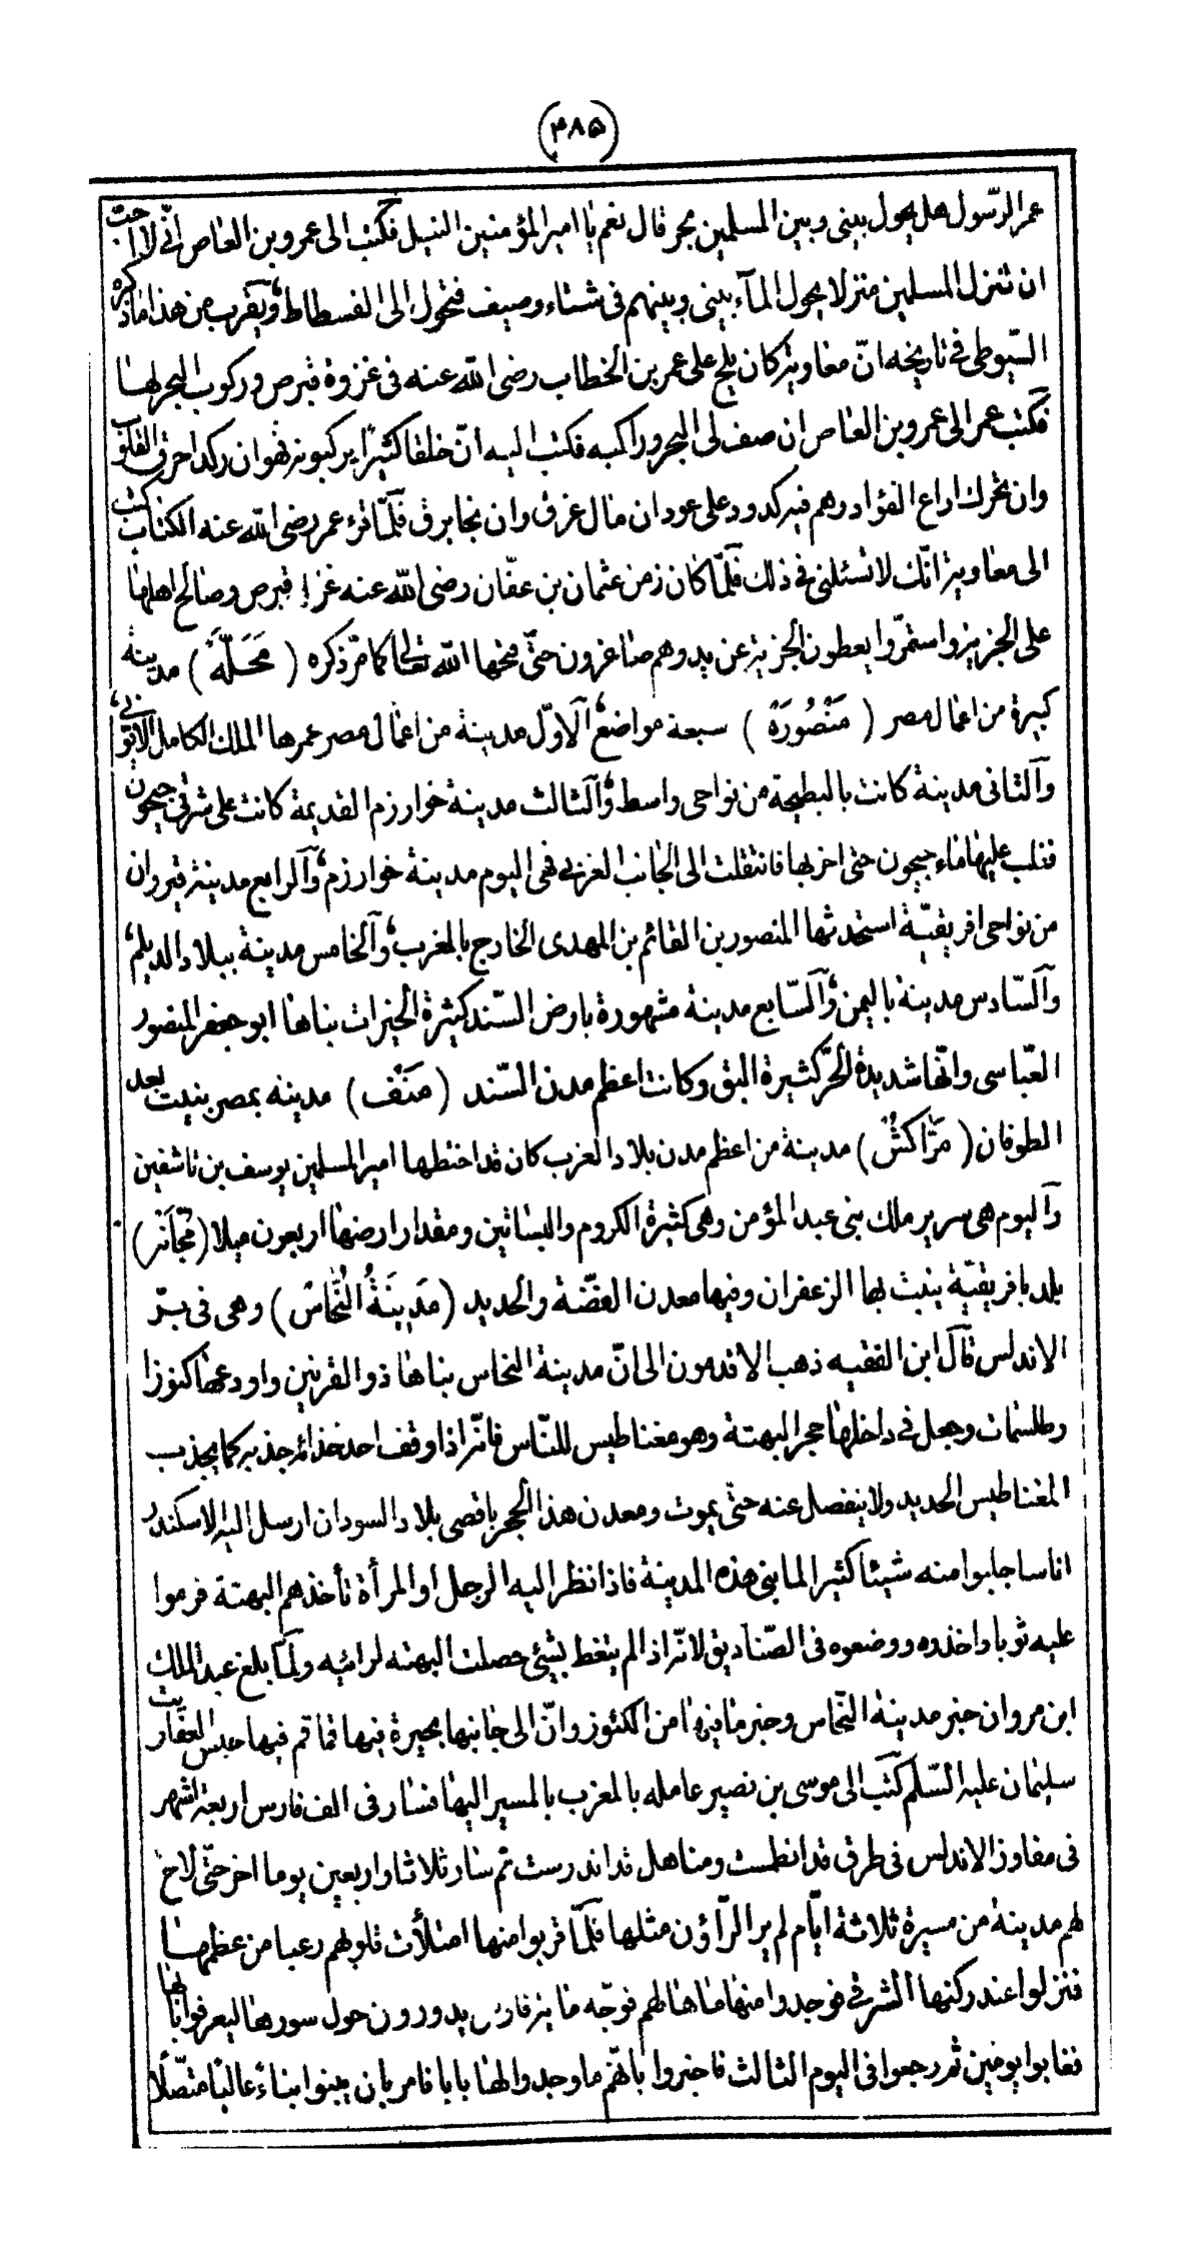 (۴۸۵)
عمر الرّسول هل يحول بينى وبين المسلمين بحر قال نعم يا امير المؤمنين النيل فكتب الى عمرو بن العاص انّى لا احبّ
ان تنزل المسلمين منزلا يحول المآء بينى وبينهم فى شتاء وصيف فتحوّل الى الفسطاط ويقرب من هذا ما ذكره
السّيوطى فى تاريخه انّ معاوية كان يلح على عمر بن الخطاب رضى اللّه عنه فى غزوة قبرص وركوب البحر لها
فكتب عمر الى عمرو بن العاص ان صف لى البحر وراكبه فكتب اليه انّ خلقا كثيرًا يركبونه فهو ان ركد احرق القلوب
وان تحرك اراع الفؤاد وهم فيه كدود على عود ان مال غرق وان نجا برق فلمّا قرء عمر رضى اللّه عنه الكتاب كتب
الى معاوية انّك لا تسئلنى فى ذلك فلمّا كان زمن عثمان بن عفّان رضى اللّه عنه غزا قبرص وصالح اهلها
على الجزية واستمرّوا يعطون الجزية عن يد وهم صاغرون حتّى فتحها اللّه تعالى كما مرّ ذكره ( مَحَلَّه ) مدينة
كبيرة من اعمال مصر ( مَنْصُورَة ) سبعة مواضع الاوّل مدينة من اعمال مصر عمرها الملك الكامل الايّوبى
وآلثانى مدينة كانت بالبطيحة من نواحى واسط وآلثالث مدينة خوارزم القديمة كانت على شرقى جيحون
فغلب عليها ماء جيحون حتى اخربها فانتقلت الى الجانب الغربى فهى اليوم مدينة خوارزم وآلرابع مدينة قيروان
من نواحى افريقيّة استحدثها المنصور بن القائم بن المهدى الخارج بالمغرب وآلخامس مدينة ببلاد الديلم
وآلسّادس مدينة باليمن وآلسّابع مدينة مشهورة بارض السّند كثيرة الخيرات بناها ابو جعفر المنصور
العبّاسى وانّها شديدة الحرّ كثيرة البق وكانت اعظم مدن السّند ( مَنَفْ ) مدينه بمصر بنيت بعد
الطوفان ( مَرَّاكشُ ) مدينة من اعظم مدن بلاد الغرب كان قد اختطها امير المسلمين يوسف بن تاشفين
وآليوم هى سرير ملك بنى عبد المؤمن وهى كثيرة الكروم والبساتين ومقدار ارضها اربعون ميلا ( مَجَّانَة )
بلد بافريقيّة ينبت بها الزعفران وفيها معدن الفضّة والحديد ( مَدِينَةُ النُّحَاسْ ) وهى فى برّ
الاندلس قآل ابن الفقيه ذهب الاقدمون الى انّ مدينة النحاس بناها ذو القرنين واودعها كنوزا
وطلسمات وجعل فى داخلها حجر البهتة وهو مغناطيس للنّاس فانّه اذا وقف احد حذائه جذبه كما يجذب
المغناطيس الحديد ولا ينفصل عنه حتّى يموت ومعدن هذا الحجر باقصى بلاد السودان ارسل اليه الاسكندر
اناسا جلبوا منه شيئا كثيرا لما بنى هذه المدينة فاذا نظر اليه الرجل او المرأة تأخذهم البهتة فرموا
عليه ثوبا واخذوه ووضعوه فى الصّناديق لانّه اذا لم يتغط بشيئ حصلت البهته لرائيه ولمّا بلغ عبد الملك
ابن مروان خبر مدينة النّحاس وخبر ما فيها من الكنوز وانّ الى جانبها بحيرة فيها قماقم فيها حبس العفاريت
سليمان عليه السّلم كتب الى موسى بن نصير عامله بالمغرب بالمسير اليها فسار فى الف فارس اربعة اشهر
فى مفاوز الاندلس فى طرق قد انطمست ومناهل قد اندرست ثم سار ثلاثا واربعين يوما اخر حتّى لاح
لهم مدينة من مسيرة ثلاثة ايّام لم ير الرّاؤن مثلها فلمّا قربوا منها امتلأت قلوبهم رعبا من عظمها
فنزلوا عند ركنها الشرقى فوجدوا منها ما هالهم فوجّه مائة فارس يدورون حول سورها ليعرفوا بابها
فغابوا يومين ثم رجعوا فى اليوم الثالث فاخبروا بانّهم ما وجدوا لها بابا فامر بان يبنوا بناء عاليا متّصلا